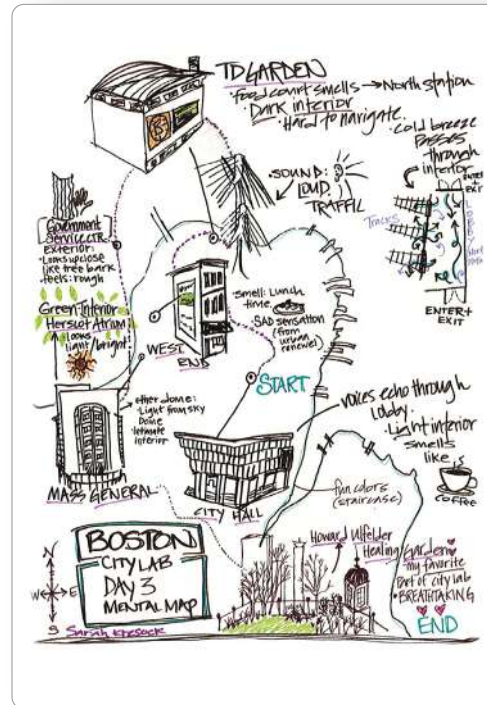 TD GARDEN
·food court smells → North station
·Dark interior
·Hard to navigate.
·cold breeze
passes
through
interior
ENTER
+
EXIT
Tracks
LOBBY
ENTER+
EXIT
·SOUND:
LOUD
TRAFFIC
Government
Service CTR.
EXTERIOR:
·Looks up close
like tree bark
·feels: rough
Green Interior
Hersiot Atrium
looks
light/bright
WEST
END
smell: Lunch
time
·SAD sensation
(from
urban
renewel)
START
other dome:
·Light from sky
Dome
·intimate
interior
MASS GENERAL
CITY HALL
voices echo through
lobby.
·Light interior
smells
like
COFFEE
fun colors
(staircase)
BOSTON
CITY LAB
DAY 3
MENTAL MAP
N
W E
S
Sarah Kresock
Howard Ulfelder
Healing Garden
·my favorite
Part of city lab
·BREATHTAKING
END